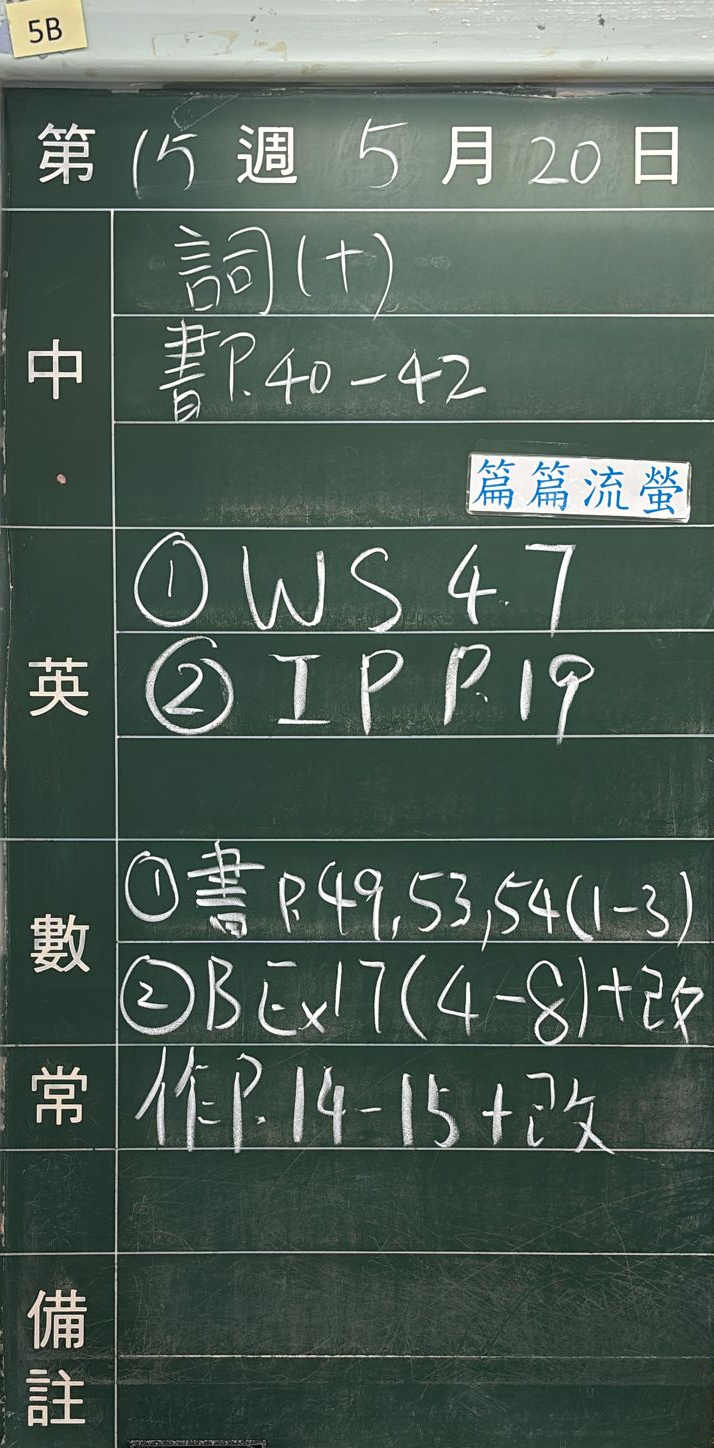 5B
第 15 週 5 月 20 日
中
詞(十)
書P.40-42
篇篇流螢
英
① WS 4.7
② IP P.19
數
①書 P.49,53,54(1-3)
②B Ex17(4-8)+改
常
作P.14-15+改
備註